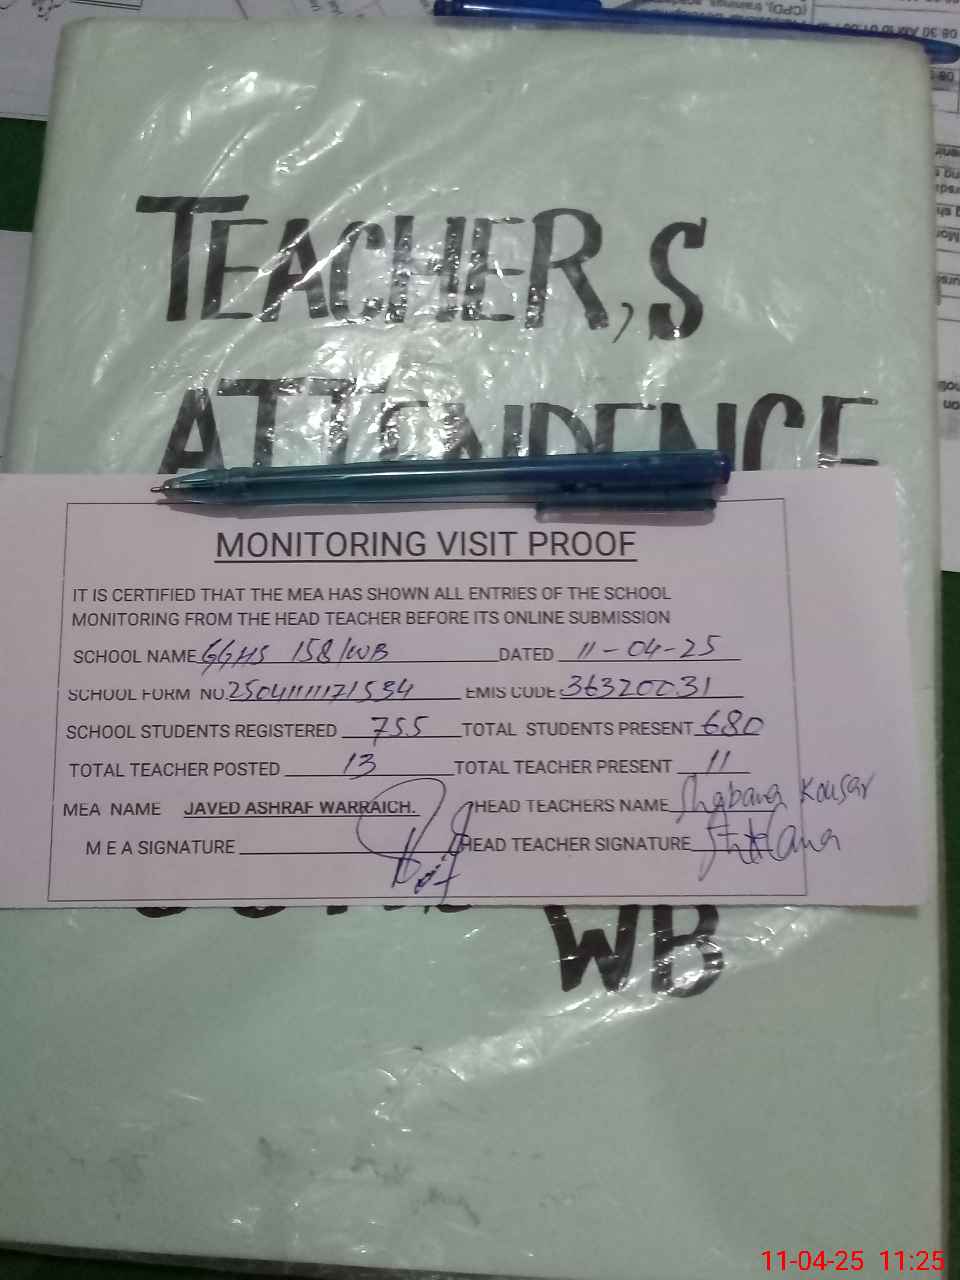 TEACHER,S
ATTENDENCE
MONITORING VISIT PROOF
IT IS CERTIFIED THAT THE MEA HAS SHOWN ALL ENTRIES OF THE SCHOOL
MONITORING FROM THE HEAD TEACHER BEFORE ITS ONLINE SUBMISSION
SCHOOL NAME GGHS 158/WB DATED 11-04-25
SCHOOL FORM NO. EMIS CODE 36320031
SCHOOL STUDENTS REGISTERED 755 TOTAL STUDENTS PRESENT 680
TOTAL TEACHER POSTED 13 TOTAL TEACHER PRESENT 11
MEA NAME JAVED ASHRAF WARRAICH. HEAD TEACHERS NAME Shabana Kousar
M E A SIGNATURE HEAD TEACHER SIGNATURE
WB
11-04-25 11:25